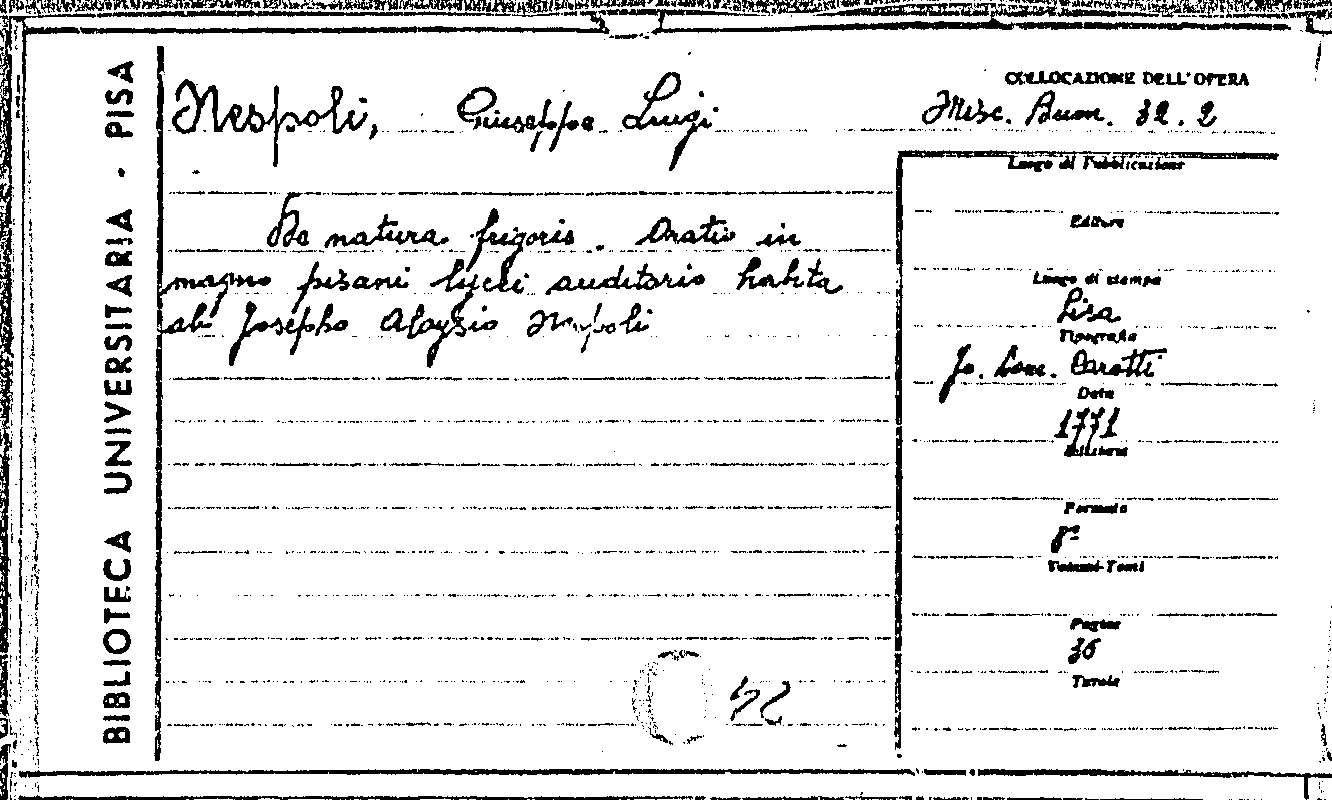 BIBLIOTECA UNIVERSITARIA - PISA
Nespoli, Giuseppe Luigi
COLLOCAZIONE DELL'OPERA
Misc. Buon. 32.2
De natura frigoris. Oratio in
magno pisani lycei auditorio habita
ab Josepho Aloysio Nespoli
Luogo di Pubblicazione
Editore
Luogo di stampa
Pisa
Tipografia
Jo. Dom. Carotti
Data
1771
Edizione
Formato
8º
Volumi-Tomi
Pagine
36
Tavole